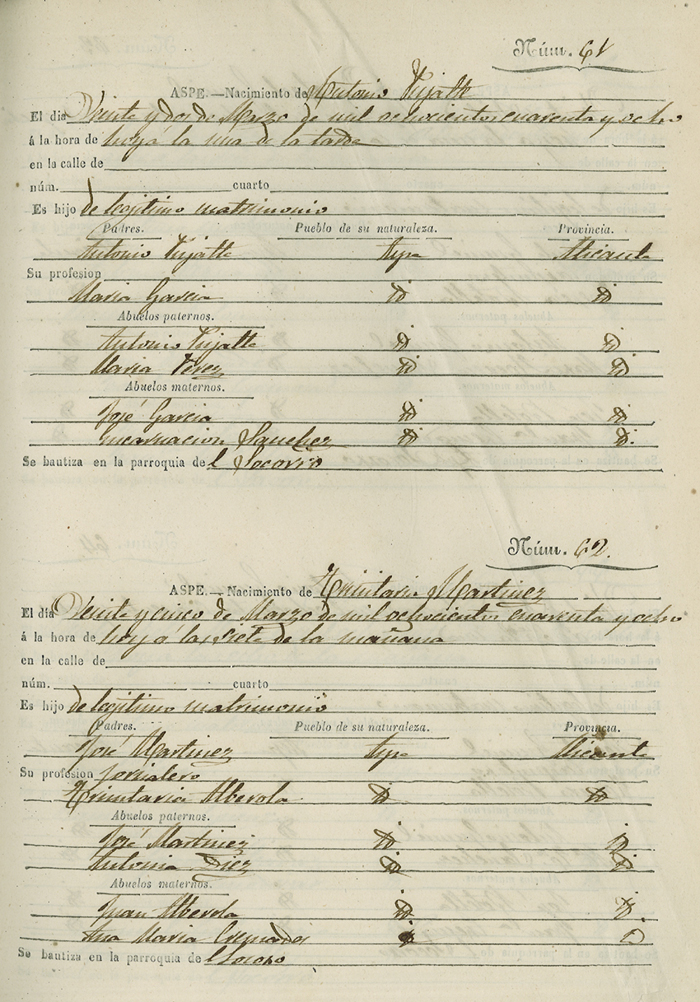 Núm. 61
ASPE.—Nacimiento de Antonio Pujalte
El dia Veinte y dos de Marzo de mil ochocientos cuarenta y ocho
á la hora de hoy á la una de la tarde
en la calle de
núm. cuarto
Es hijo de legitimo matrimonio
Padres. Pueblo de su naturaleza. Provincia.
Antonio Pujalte Aspe Alicante
Su profesion
Maria Garcia id id
Abuelos paternos.
Antonio Pujalte id id
Maria Perez id id
Abuelos maternos.
José Garcia id id
Encarnacion Sanchez id id.
Se bautiza en la parroquia del Socorro
Núm. 62.
ASPE.—Nacimiento de Trinitario Martinez
El dia Veinte y cinco de Marzo de mil ochocientos cuarenta y ocho
á la hora de hoy á las siete de la mañana
en la calle de
núm. cuarto
Es hijo de legitimo matrimonio
Padres. Pueblo de su naturaleza. Provincia.
José Martinez Aspe Alicante
Su profesion Jornalero
Trinitaria Alberola id id
Abuelos paternos.
José Martinez id id
Antonia Diez id id
Abuelos maternos.
Juan Alberola id id.
Ana Maria Cremades id
Se bautiza en la parroquia del Socorro